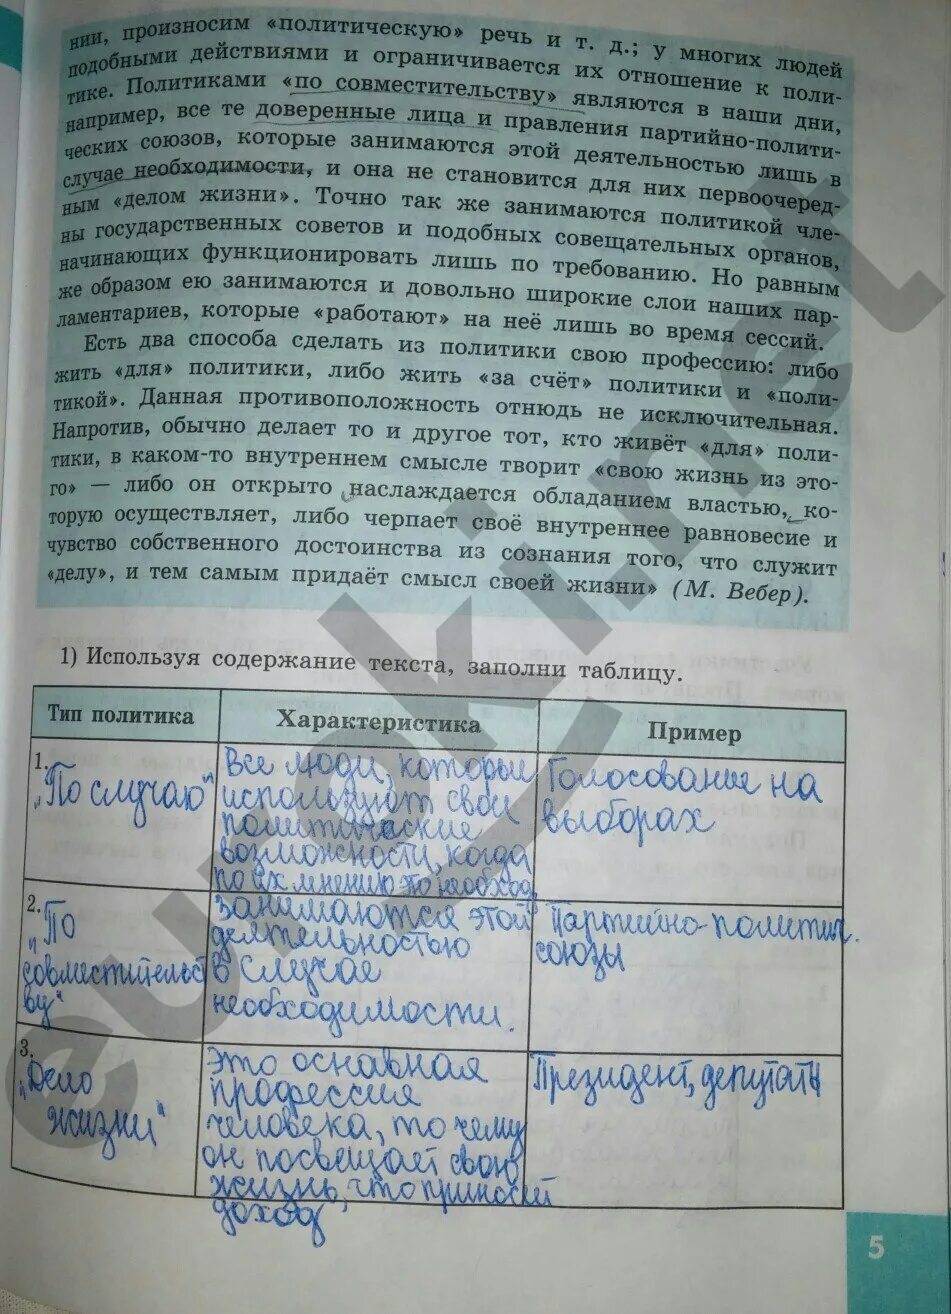 нии, произносим «политическую» речь и т. д.; у многих людей
подобными действиями и ограничивается их отношение к поли-
тике. Политиками «по совместительству» являются в наши дни,
например, все те доверенные лица и правления партийно-полити-
ческих союзов, которые занимаются этой деятельностью лишь в
случае необходимости, и она не становится для них первоочеред-
ным «делом жизни». Точно так же занимаются политикой чле-
ны государственных советов и подобных совещательных органов,
начинающих функционировать лишь по требованию. Но равным
же образом ею занимаются и довольно широкие слои наших пар-
ламентариев, которые «работают» на неё лишь во время сессий.
Есть два способа сделать из политики свою профессию: либо
жить «для» политики, либо жить «за счёт» политики и «поли-
тикой». Данная противоположность отнюдь не исключительная.
Напротив, обычно делает то и другое тот, кто живёт «для» поли-
тики, в каком-то внутреннем смысле творит «свою жизнь из это-
го» — либо он открыто наслаждается обладанием властью, ко-
торую осуществляет, либо черпает своё внутреннее равновесие и
чувство собственного достоинства из сознания того, что служит
«делу», и тем самым придаёт смысл своей жизни» (М. Вебер).
1) Используя содержание текста, заполни таблицу.
Тип политика
Характеристика
Пример
1.
„По случаю"
Все люди, которые
используют свои
политические
возможности, когда
по их мнению это необход.
Голосование на
выборах
2.
„По
совместительст
ву"
занимаются этой
деятельностью
в случае
необходимости.
Партийно-политич.
союзы
3.
„Дело
жизни"
это основная
профессия
человека, то чему
он посвещает свою
жизнь, что приносит
доход
Президент, депутаты
5
euroki.net